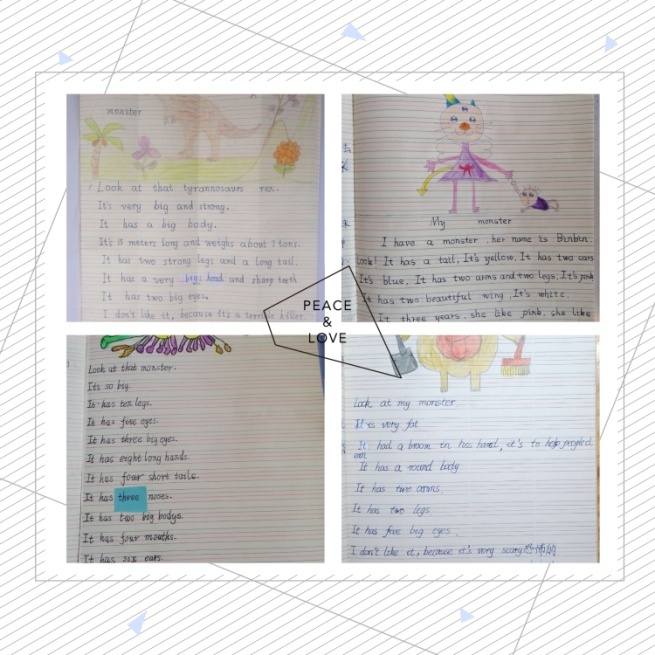 monster
Look at that tyrannosaurs rex.
It's very big and strong.
It has a big body.
It's 15 meters long and weighs about 7 tons.
It has two strong legs and a long tail.
It has a very big head and sharp teeth
It has two big eyes.
I don't like it, because it's a terrible killer.
My monster
I have a monster. her name is Binbin.
Look! It has a tail, It's yellow, It has two ears
It's blue, It has two arms and two legs, It's pink
It has two beautiful wing. It's white.
It three years. she like pink. she like
PEACE
&
LOVE
Look at that monster.
It's so big.
It has ten legs.
It has five eyes.
It has three big eyes.
It has eight long hands.
It has four short tails.
It has three noses.
It has two big bodys.
It has four mouths.
It has six ears.
Look at my monster
It's very fat.
It had a broom in his hand, it's to help
It has a round body
It has two arms
It has two legs
It has five big eyes.
I don't like it, because it's very scary